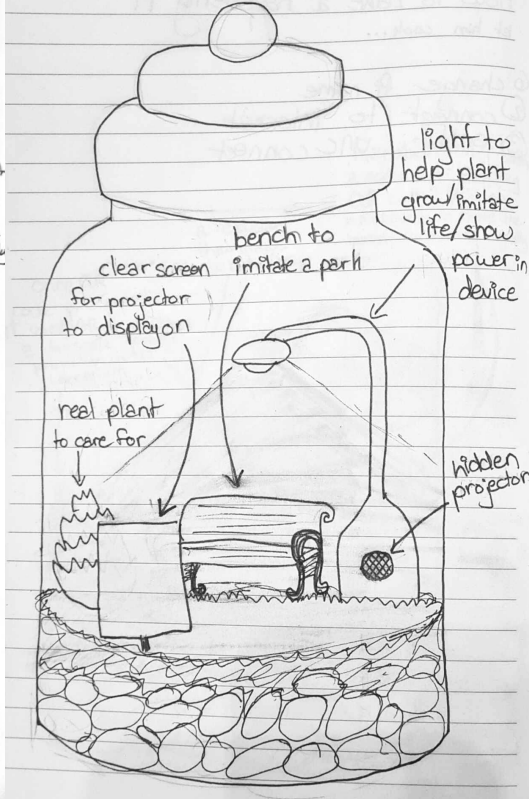 light to
help plant
grow/imitate
life/show
power in
device
bench to
imitate a park
clear screen
for projector
to display on
real plant
to care for
hidden
projector